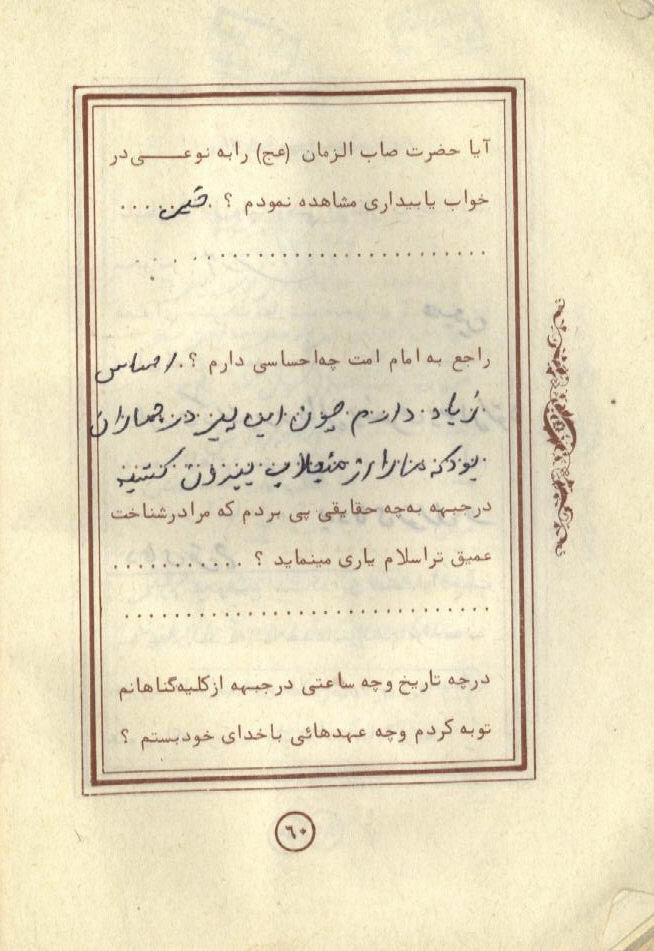 آیا حضرت صاب الزمان (عج) رابه نوعــی در
خواب یابیداری مشاهده نمودم ؟ . . . . . . . .
. . . . . . . . . . . . . . . . . . . . . . . . . . . .
راجع به امام امت چه‌احساسی دارم ؟ . احساس
زیاد دارم چون این پیر در جماران
بود که ما را از منجلاب بیرون کشید
درجبهه به‌چه حقایقی پی بردم که مرادرشناخت
عمیق تراسلام یاری مینماید ؟ . . . . . . . . . . .
. . . . . . . . . . . . . . . . . . . . . . . . . . . .
درچه تاریخ وچه ساعتی درجبهه ازکلیه‌گناهانم
توبه کردم وچه عهدهائی باخدای خودبستم ؟
٦٠